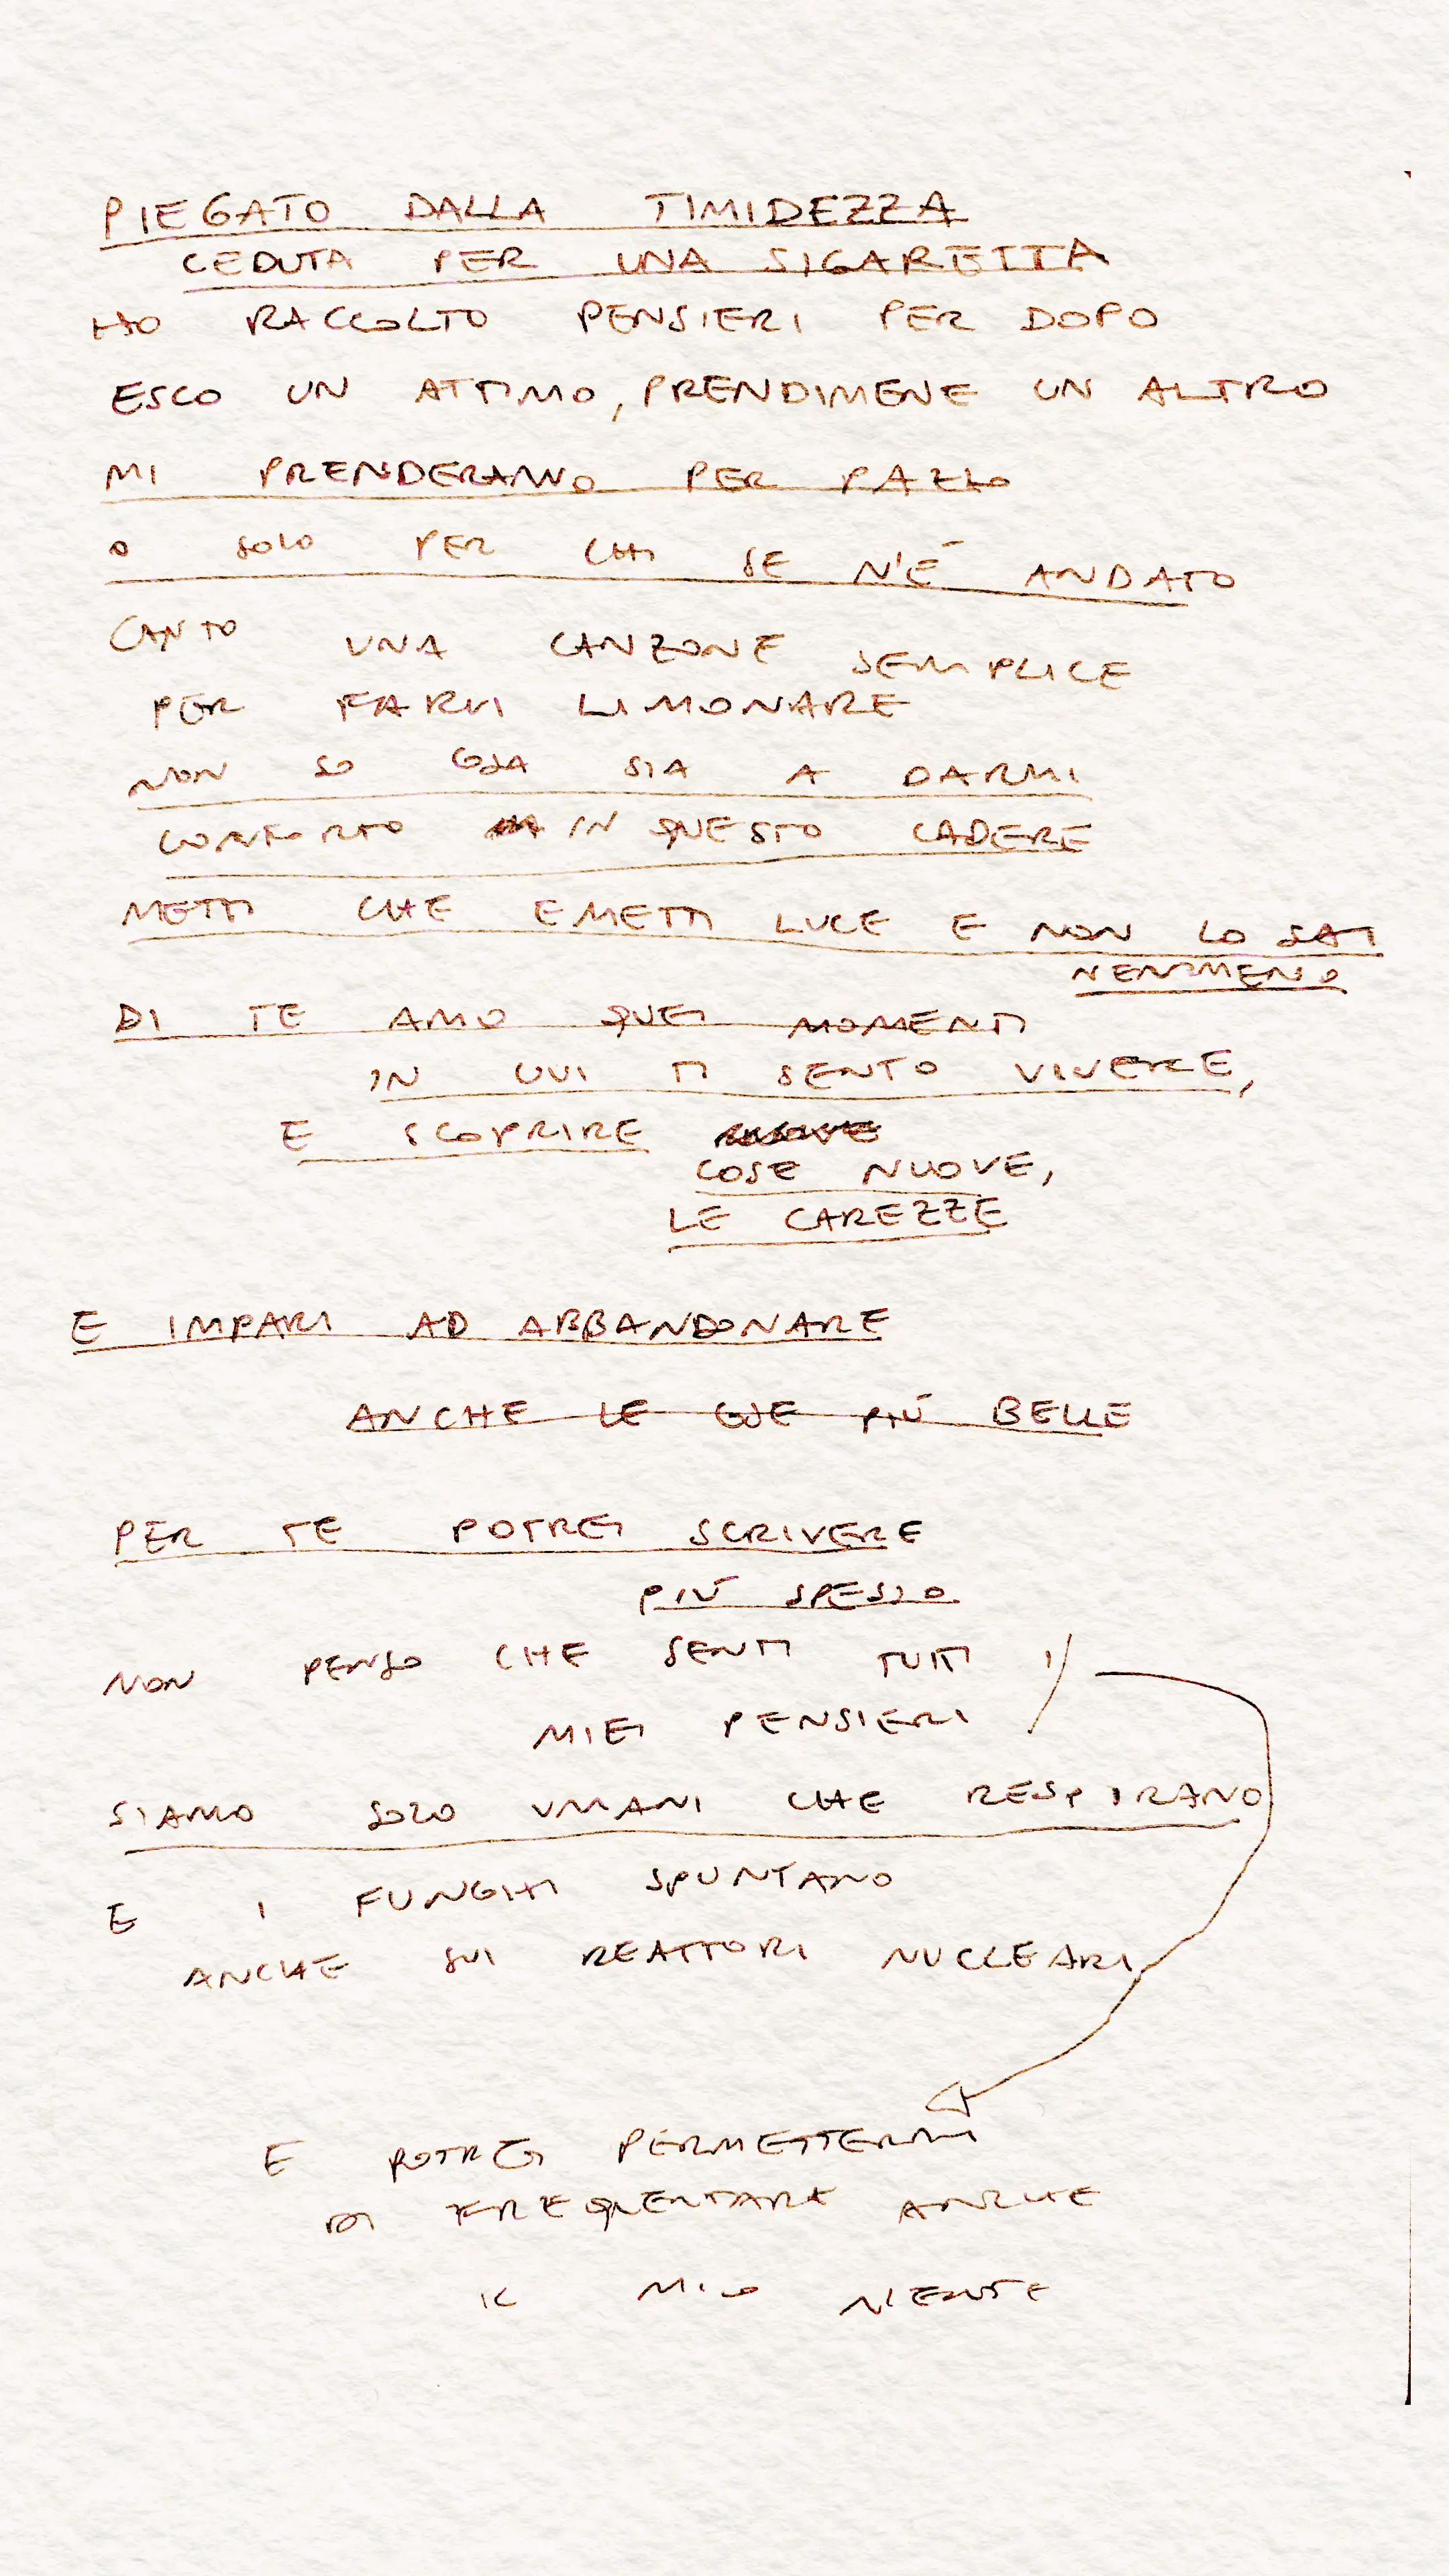 PIEGATO DALLA TIMIDEZZA
CEDUTA PER UNA SIGARETTA
HO RACCOLTO PENSIERI PER DOPO
ESCO UN ATTIMO, PRENDIMENE UN ALTRO
MI PRENDERANNO PER PAZZO
O SOLO PER CHI SE N'É ANDATO
CANTO UNA CANZONE SEMPLICE
PER FARVI LIMONARE
NON SO COSA SIA A DARMI
CONFORTO IN QUESTO CADERE
METTI CHE EMETTI LUCE E NON LO SAI
NEMMENO
DI TE AMO QUEI MOMENTI
IN CUI TI SENTO VIVERE,
E SCOPRIRE
COSE NUOVE,
LE CAREZZE
E IMPARI AD ABBANDONARE
ANCHE LE COSE PIÚ BELLE
PER TE POTREI SCRIVERE
PIÚ SPESSO
NON PENSO CHE SENTI TUTTI I
MIEI PENSIERI
SIAMO SOLO UMANI CHE RESPIRANO
E I FUNGHI SPUNTANO
ANCHE SUI REATTORI NUCLEARI
E POTREI PERMETTERMI
DI FREQUENTARE ANCHE
IL MIO NIENTE